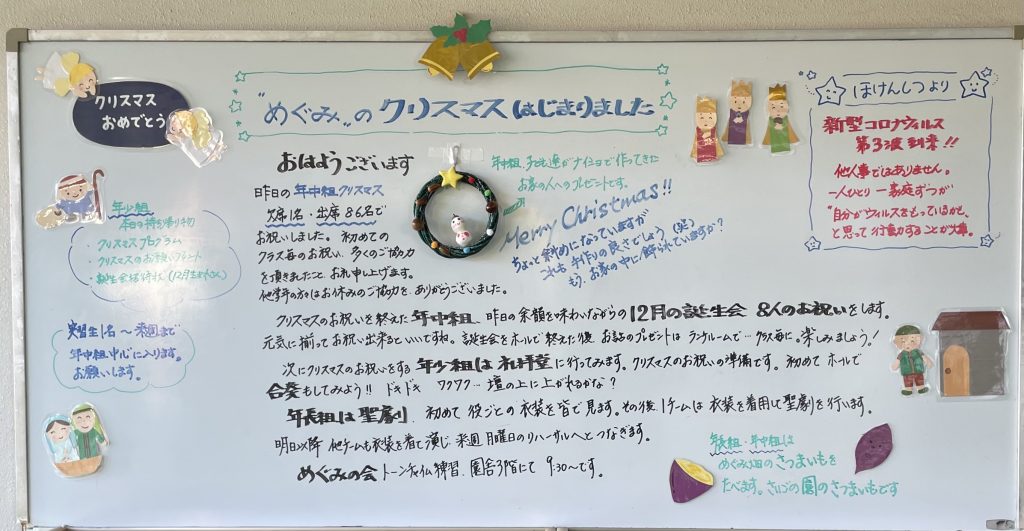 クリスマス
おめでとう
"めぐみ"の クリスマス はじまりました
ほけんしつより
新型コロナウィルス
第3波到来!!
他人事ではありません。
一人ひとり 一家庭ずつが
"自分がウィルスをもっているかも、
と思って行動することが大事。
おはようございます
昨日の 年中組 クリスマス
欠席1名・出席86名で
お祝いしました。初めての
クラス毎のお祝い、多くのご協力
を頂きましたこと お礼申し上げます。
他学年の方々はお休みのご協力を、ありがとうございました。
年中組、子ども達がナイロンで作ってきた
お家の人へのプレゼントです。
Merry Christmas!!
ちょっと斜めになっていますが
これも 手作りの良さでしょう(笑)
もう、お家の中に飾られていますか?
年少組
本日の持ち帰り物
・クリスマスプログラム
・クリスマスのお祝いプレゼント
・誕生会招待状(12月生まれさん)
実習生1名~来週まで
年中組中心に入ります。
お願いします。
クリスマスのお祝いを終えた 年中組、昨日の余韻を味わいながらの 12月の誕生会 8人のお祝いをします。
元気に揃ってお祝い出来るといいですね。誕生会をホールで終えた後 お話のプレゼントは ランチルームで…クラス毎に。楽しみましょう!
次にクリスマスのお祝いをする 年少組は 礼拝堂に行ってみます。クリスマスのお祝いの準備です。初めて ホールで
合奏もしてみよう!! ドキドキ ワクワク… 壇の上に上がれるかな?
年長組は 聖劇、初めて 役ごとの 衣装を皆で見ます。その後、1チームは 衣装を着用して聖劇を行います。
明日以降 他チームも衣装を着て演じ 来週 月曜日のリハーサルへと つなぎます。
めぐみの会 トーンチャイム練習、園舎3階にて 9:30~です。
年長組・年中組は
めぐみ畑の さつまいもを
たべます。さいごの 園のさつまいもです